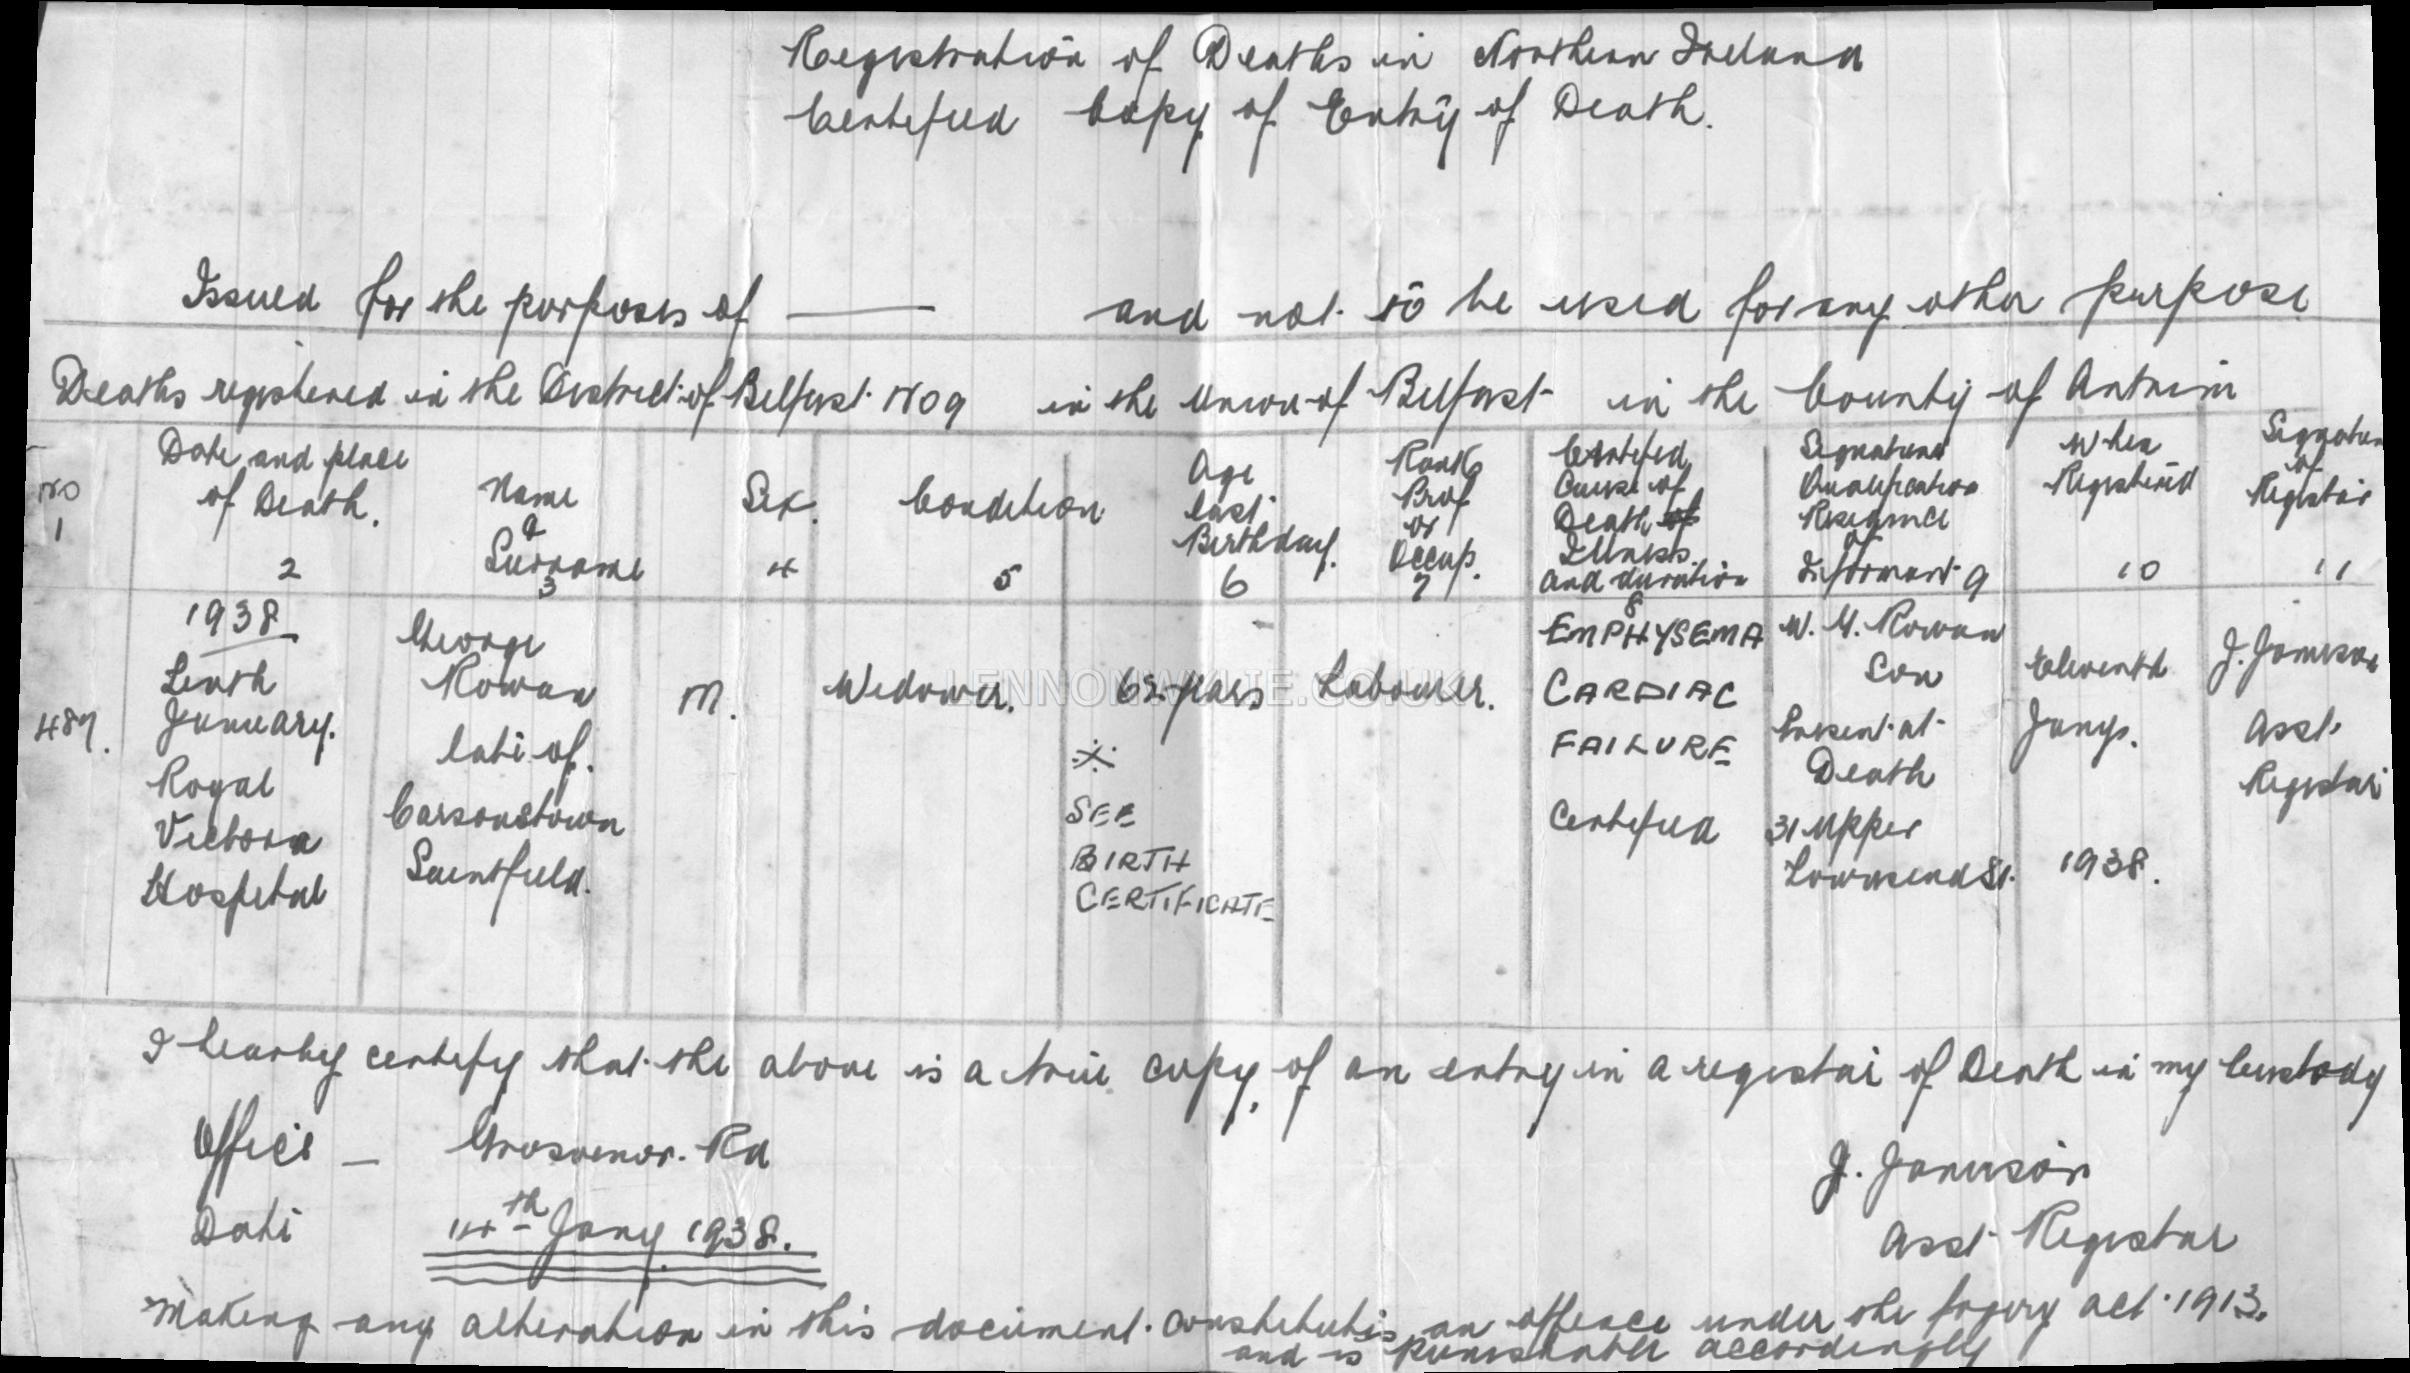 Registration of Deaths in Northern Ireland
Certified Copy of Entry of Death.
Issued for the purposes of —— and not to be used for any other purpose
Deaths registered in the District of Belfast No 9 in the Union of Belfast in the County of Antrim
No
1
Date and place
of Death.
2
Name
&
Surname
3
Sex.
4
Condition
5
Age
last
Birthday.
6
Rank
Prof
or
Occup.
7
Certified
Cause of
Death of
Illness
and duration
8
Signature
Qualification
Residence
of
Informant 9
When
Registered
10
Signature
of
Registrar
11
487.
1938
Tenth
January.
Royal
Victoria
Hospital
George
Rowan
late of
Carsonstown
Saintfield.
M.
Widower.
62 years
※
SEE
BIRTH
CERTIFICATE
Labourer.
EMPHYSEMA
CARDIAC
FAILURE
Certified
W. H. Rowan
Son
Present at
Death
31 Upper
Townsend St.
Eleventh
Jany.
1938.
J. Jamison
Asst.
Registrar
LENNONWYLIE.CO.UK
I hearby certify that the above is a true copy, of an entry in a registar of Death in my Custody
Office — Grosvenor. Rd
Date 14th Jany 1938.
J. Jamison
Asst Registrar
Making any alteration in this document constitutes an offence under the forgery act 1913.
and is punishable accordingly